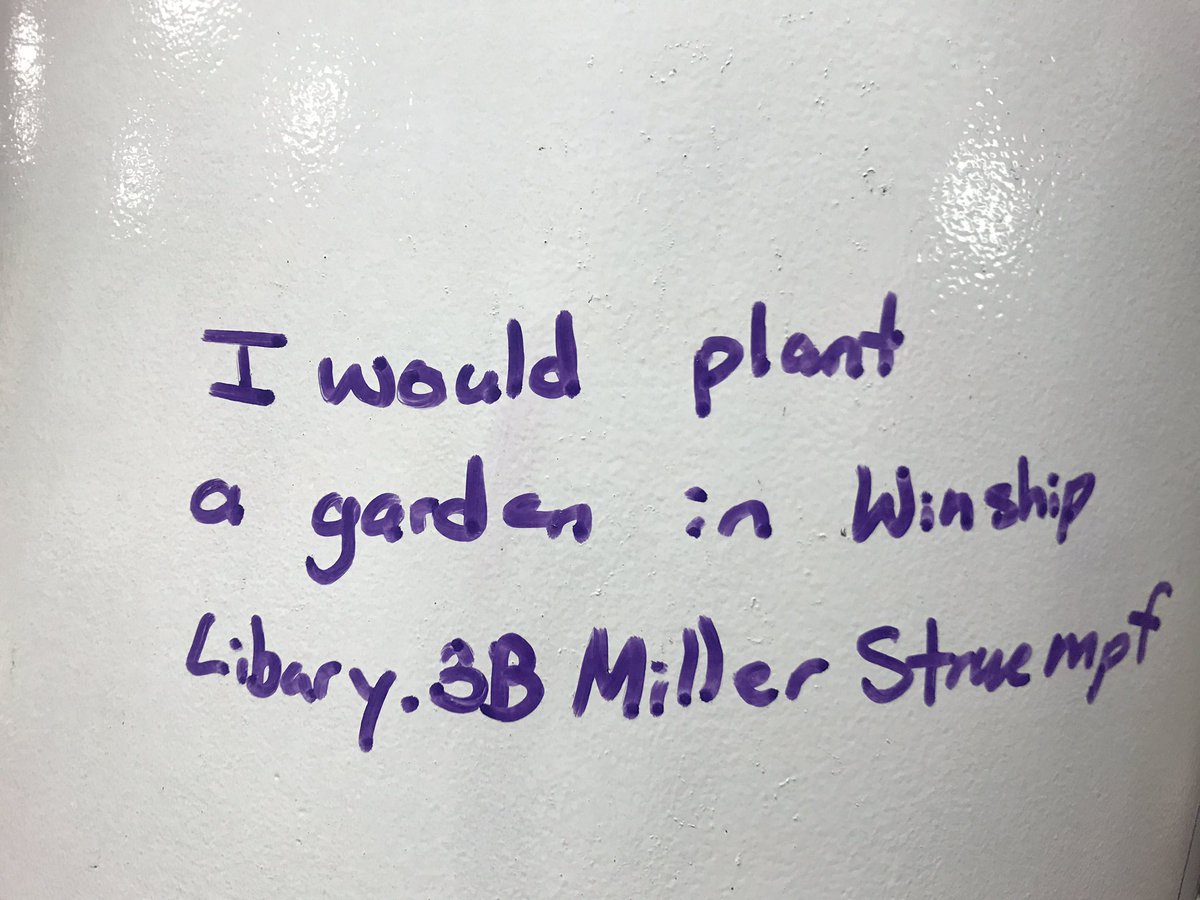 I would plant
a garden in Winship
Libary. 3B Miller Struempf